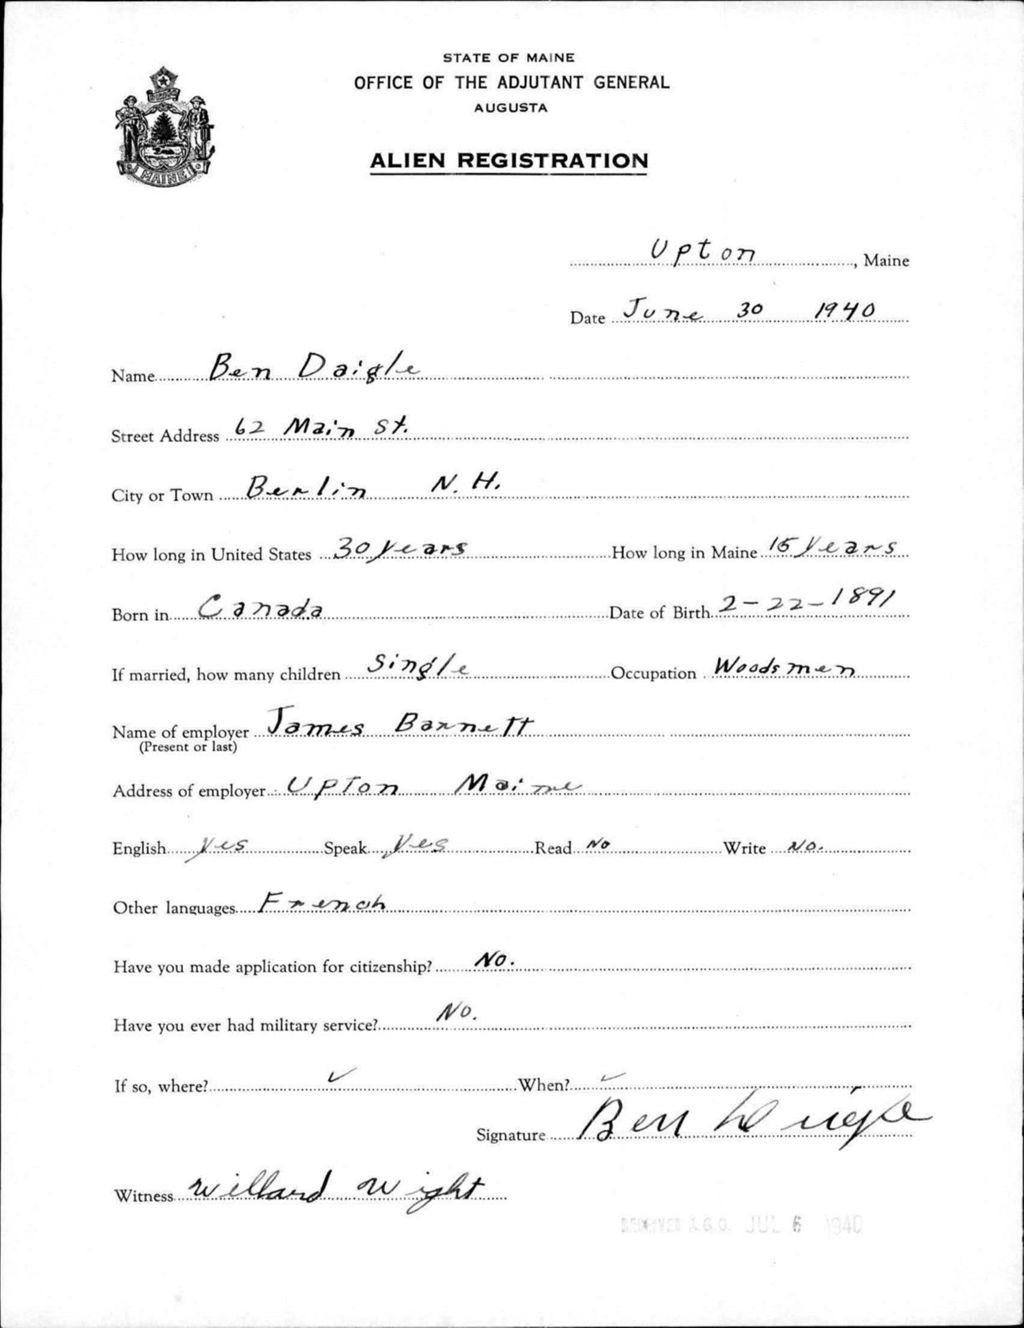 STATE OF MAINE
OFFICE OF THE ADJUTANT GENERAL
AUGUSTA
ALIEN REGISTRATION
MAINE
Upton, Maine
Date June 30 1940
Name Ben Daigle
Street Address 62 Main St.
City or Town Berlin N. H.
How long in United States 30 years How long in Maine 15 years
Born in Canada Date of Birth 2-22-1891
If married, how many children Single Occupation Woodsmen
Name of employer James Barnett
(Present or last)
Address of employer Upton Maine
English Yes Speak Yes Read No Write No.
Other languages French
Have you made application for citizenship? No.
Have you ever had military service? No.
If so, where? ✓ When? ✓
Signature Ben Daigle
Witness Willard Wight
RECEIVED A.G.O. JUL 6 1940